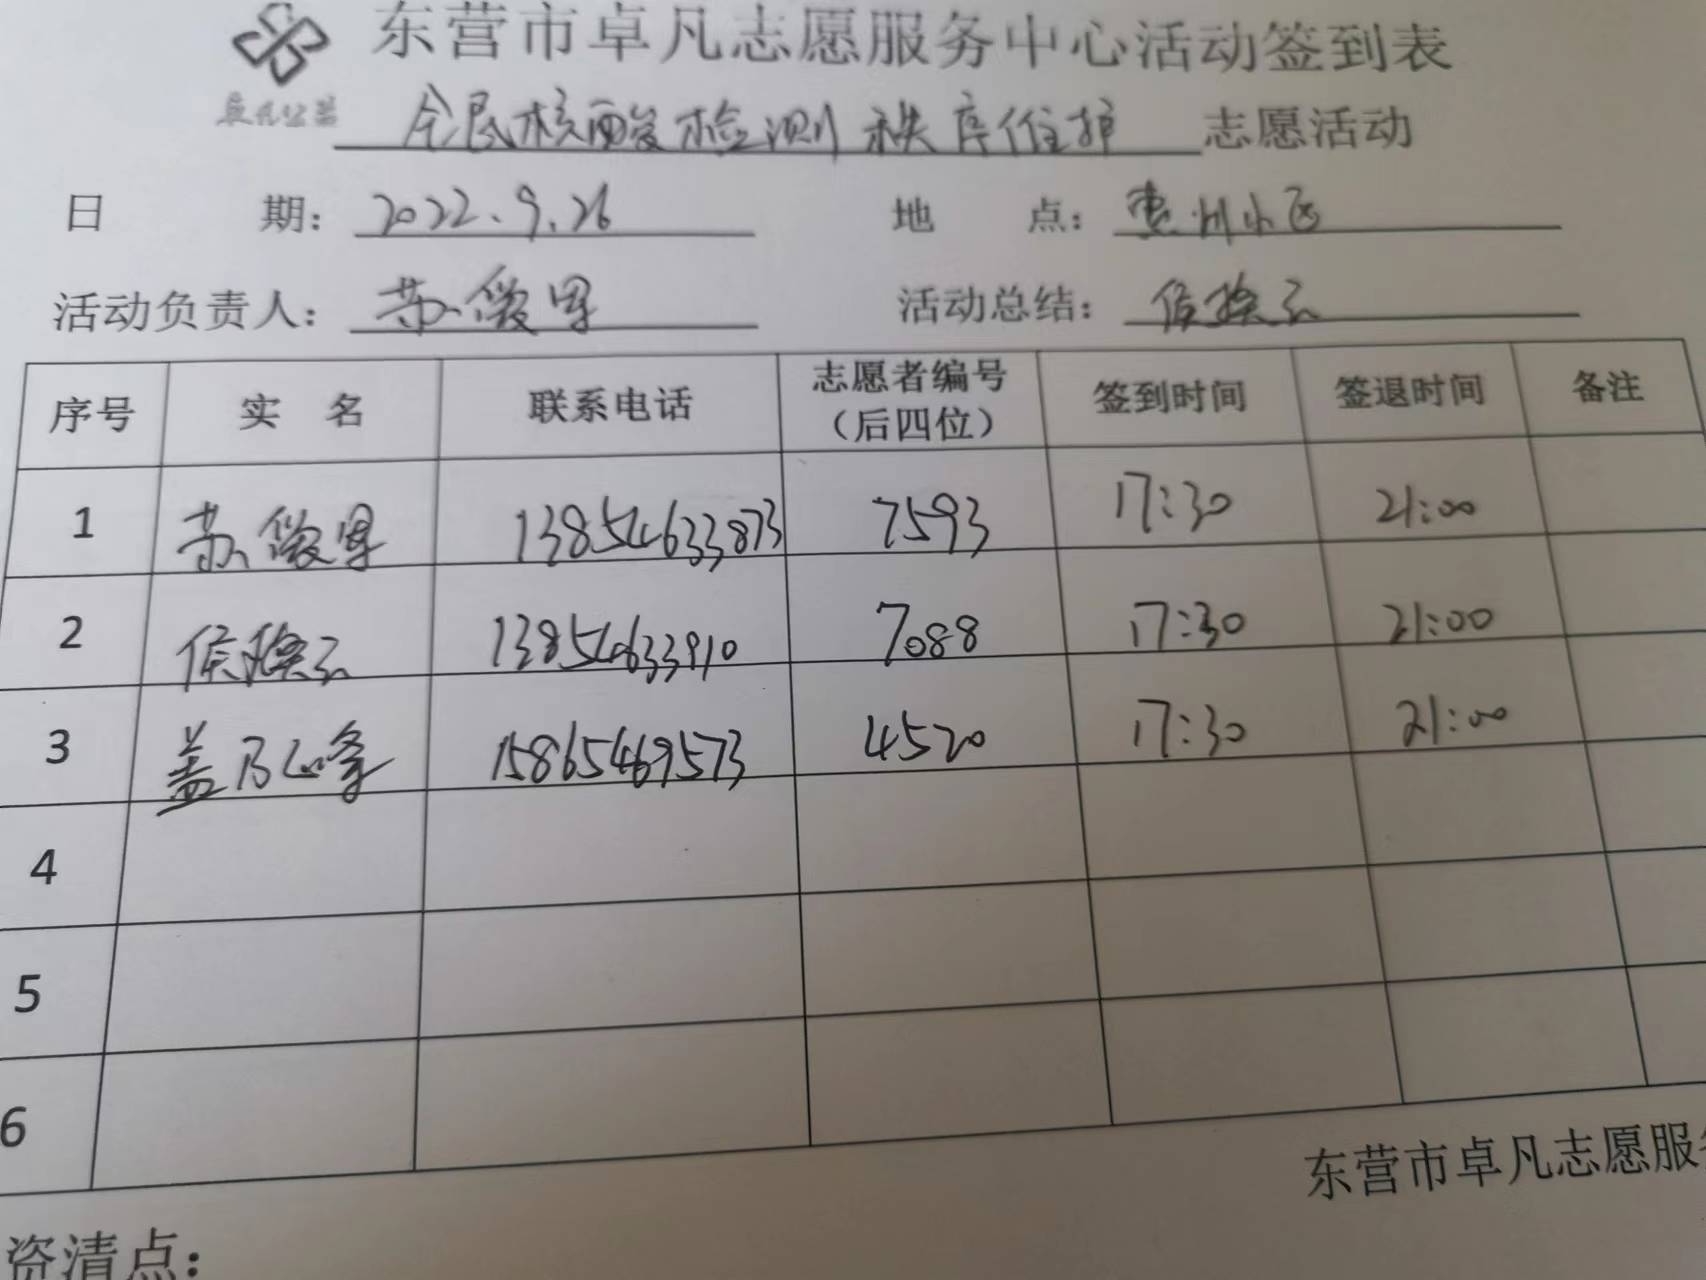 东营市卓凡志愿服务中心活动签到表
卓凡公益 全民核酸检测秩序维护 志愿活动
日 期： 2022.9.26 地 点： 惠州小区
活动负责人： 苏 活动总结： 侯焕云
序号 实 名 联系电话 志愿者编号（后四位） 签到时间 签退时间 备注
1 苏 13854633873 7593 17:30 21:00
2 侯焕云 13854633910 7088 17:30 21:00
3 盖乃峰 15865469573 4520 17:30 21:00
4
5
6
东营市卓凡志愿服
资清点：